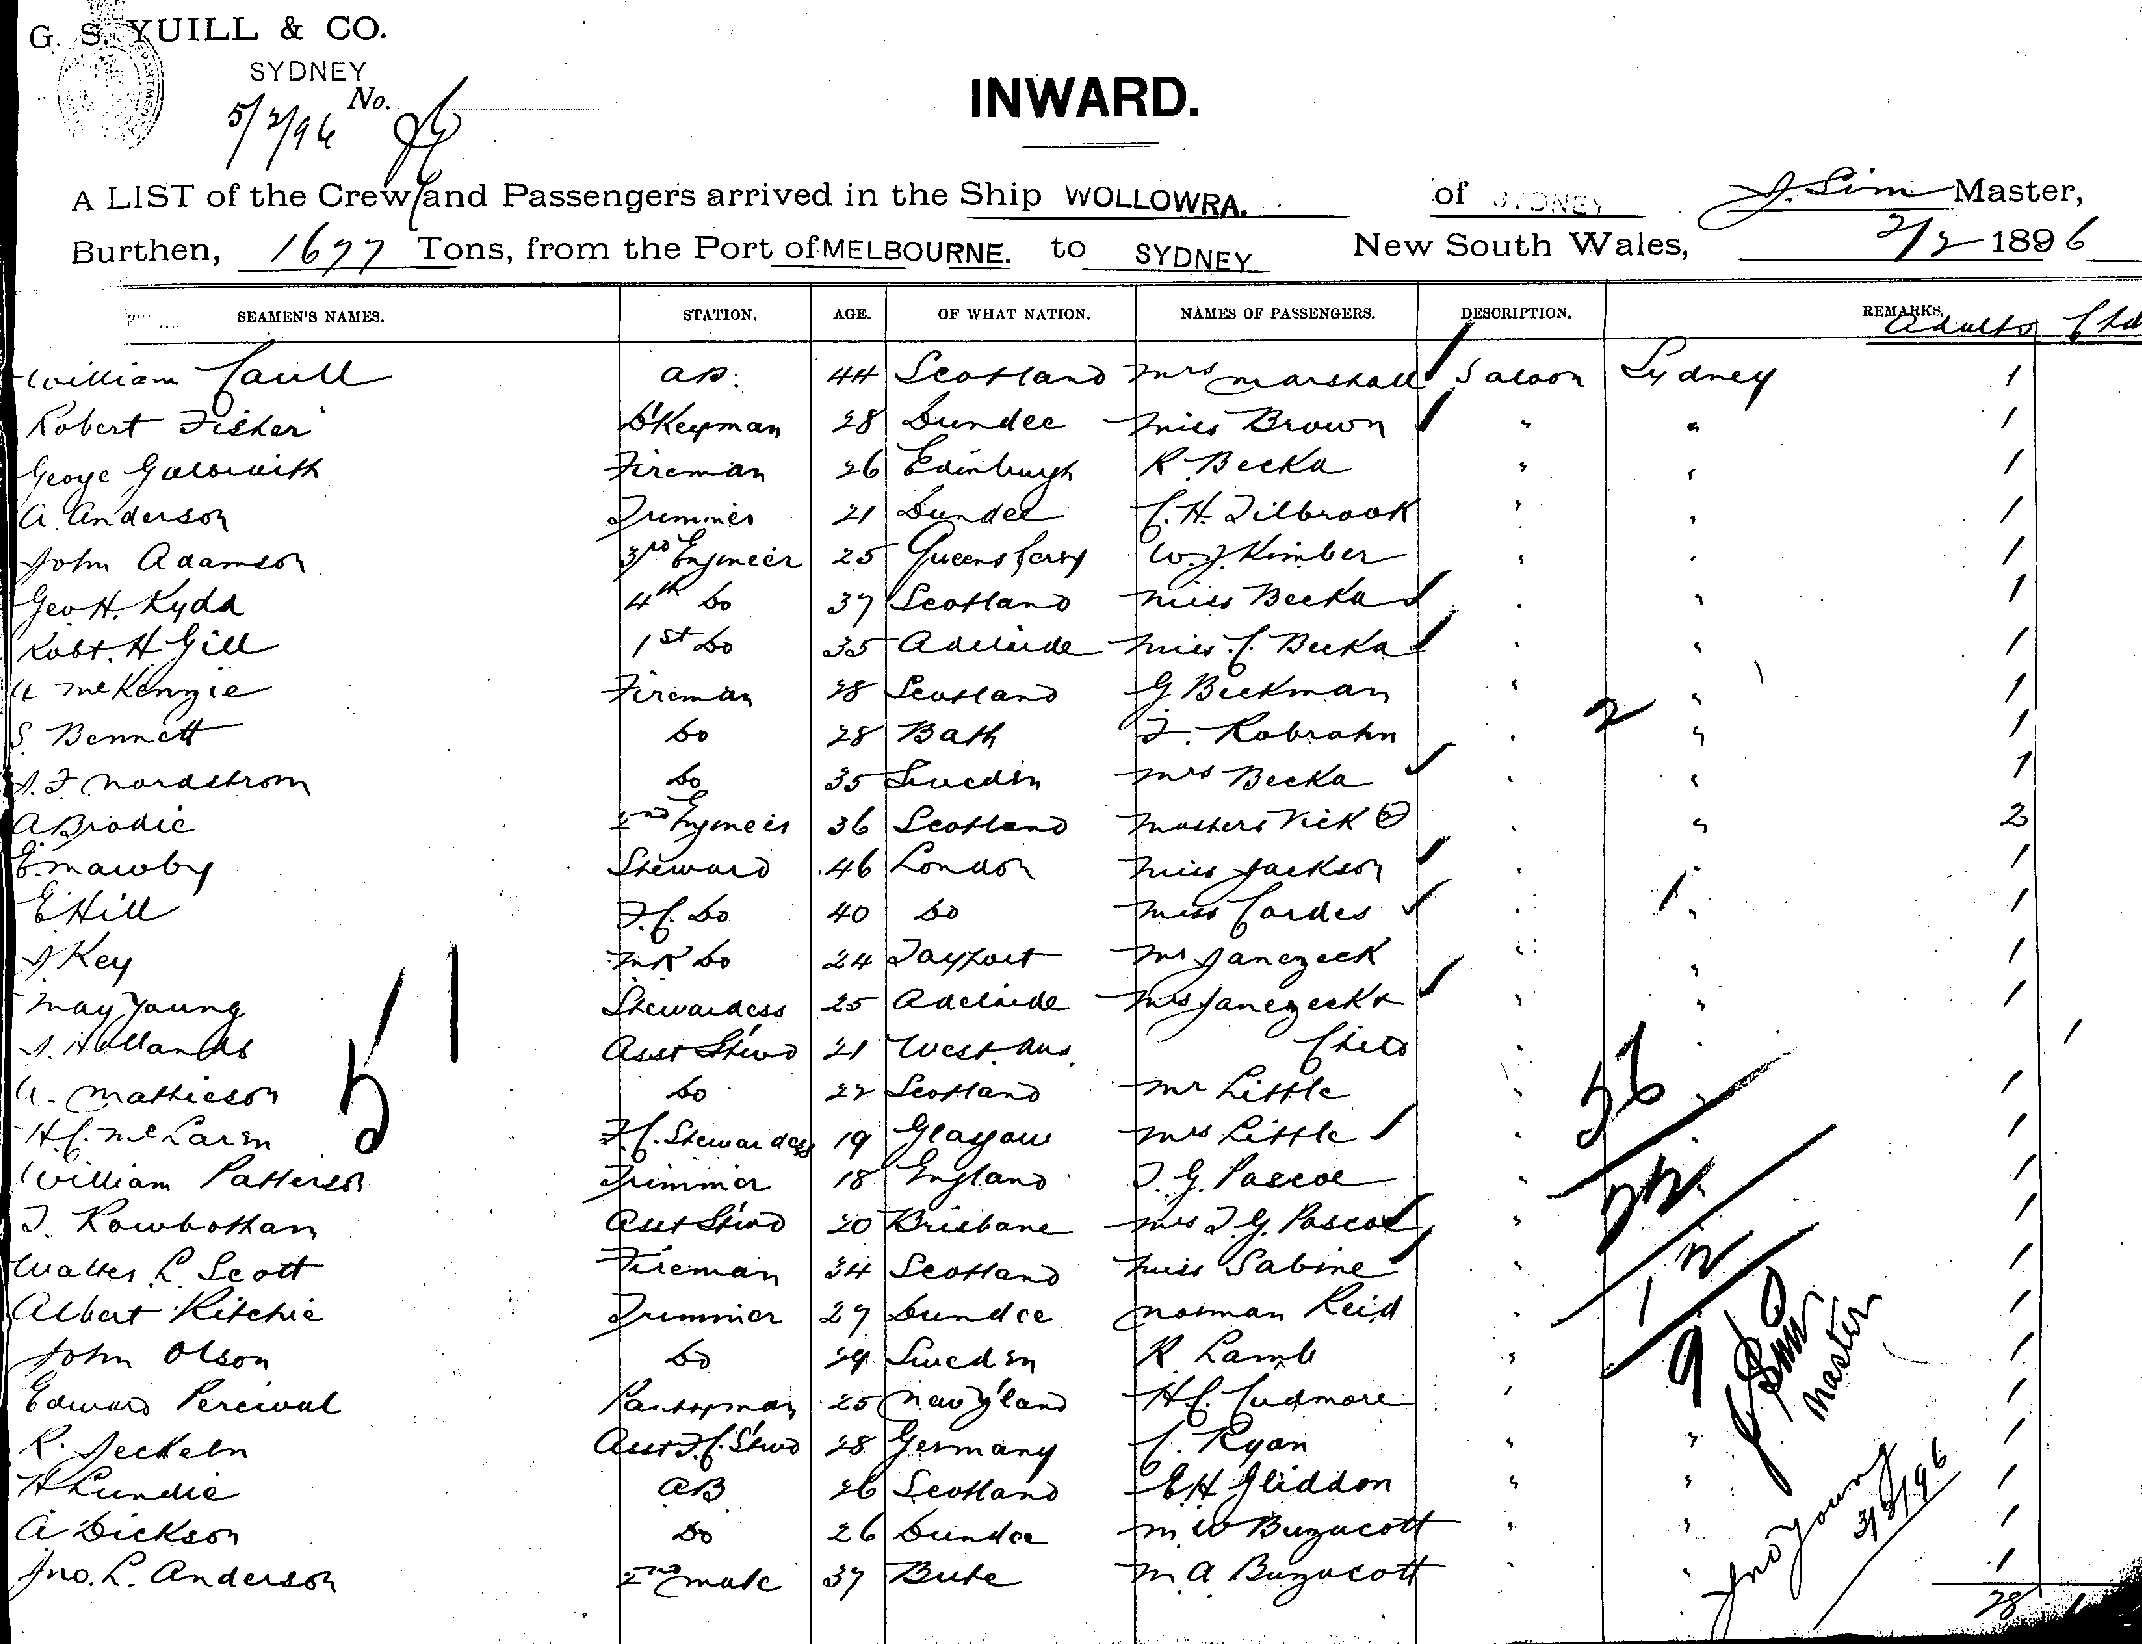 G. S. YUILL & CO.
SYDNEY
5/2/96 No.
INWARD.
A LIST of the Crew and Passengers arrived in the Ship WOLLOWRA. of SYDNEY J. Sim Master,
Burthen, 1677 Tons, from the Port of MELBOURNE. to SYDNEY New South Wales, 2/2 1896
SEAMEN'S NAMES. STATION. AGE. OF WHAT NATION. NAMES OF PASSENGERS. DESCRIPTION. REMARKS. Adults Chd
William Caull AB. 44 Scotland Mrs Marshall Saloon Sydney 1
Robert Fisher D'Keyman 28 Dundee Miss Brown " " 1
George Fireman 26 Edinburgh R. Becka " " 1
A. Anderson Trimmer 21 Dundee C. H. Tilbrook " " 1
John Adamson 3rd Engineer 25 Queensferry W. J. Kimber " " 1
Geo H. Kydd 4th Do 37 Scotland Miss Becka " " 1
Robt. H Gill 1st Do 35 Adelaide Miss C. Becka " " 1
A McKenzie Fireman 28 Scotland G Beckman " 2 " 1
S. Bennett Do 28 Bath F. Robrahn " " 1
J. F Nordstrom Do 35 Sweden Mrs Becka " " 1
A Brodie 2nd Engineer 36 Scotland Masters Vick 2 " " 2
E. Mawby Steward 46 London Miss Jackson " 1
E Hill F.C. Do 40 Do Miss Cordes " 1 " 1
J Key MR Do 24 Tayport Mr Janezeck " " 1
May Young Stewardess 25 Adelaide Mrs Janezeck " " 1
J. Hollands Asst Stewd 21 West. Aus. Child " 1
A. Mathieson 51 Do 22 Scotland Mr Little " 56 " 1
H. C. McLaren F.C. Stewardess 19 Glasgow Mrs Little " " 1
William Patterson Trimmer 18 England T. G. Pascoe " 22 1
T. Rowbothan Asst Stewd 20 Brisbane Mrs T. G. Pascoe " 1
Walter L. Scott Fireman 34 Scotland Miss Sabine " 12 1
Albert Ritchie Trimmer 27 Dundee Norman Reid " 1
John Olson Do 29 Sweden R Lamb " 9 J. Sim Master 1
Edward Percival Pantryman 25 New Z'land H. C. Cudmore " 1
R. Jeckeln Asst F.C. Stewd 28 Germany C. Ryan " " 1
H Lundie AB 26 Scotland E H Gliddon " " 1
A Dickson Do 26 Dundee M. W Buzacott " " 1
Jno. L. Anderson 2nd Mate 37 Bute M. A Buzacott " " Jno Young 3/2/96 1
28 1